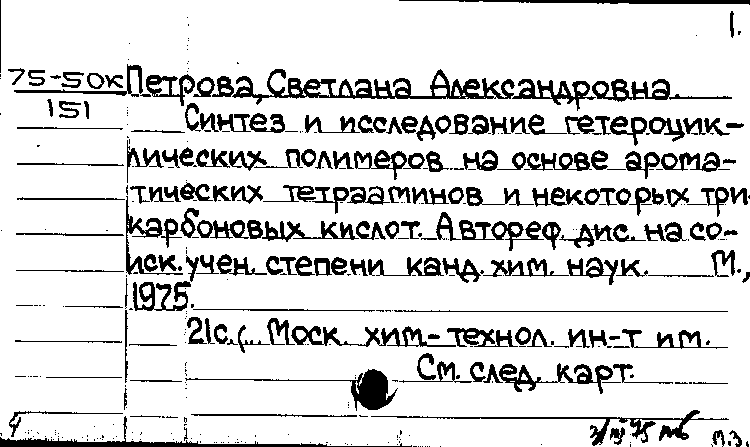 1.
75-50к Петрова, Светлана Александровна.
151 Синтез и исследование гетероцик-
лических полимеров на основе арома-
тических тетрааминов и некоторых три
карбоновых кислот. Автореф. дис. на со-
иск. учен. степени канд. хим. наук. М.,
1975.
21с. (.. Моск. хим-технол. ин-т им.
См. след. карт.